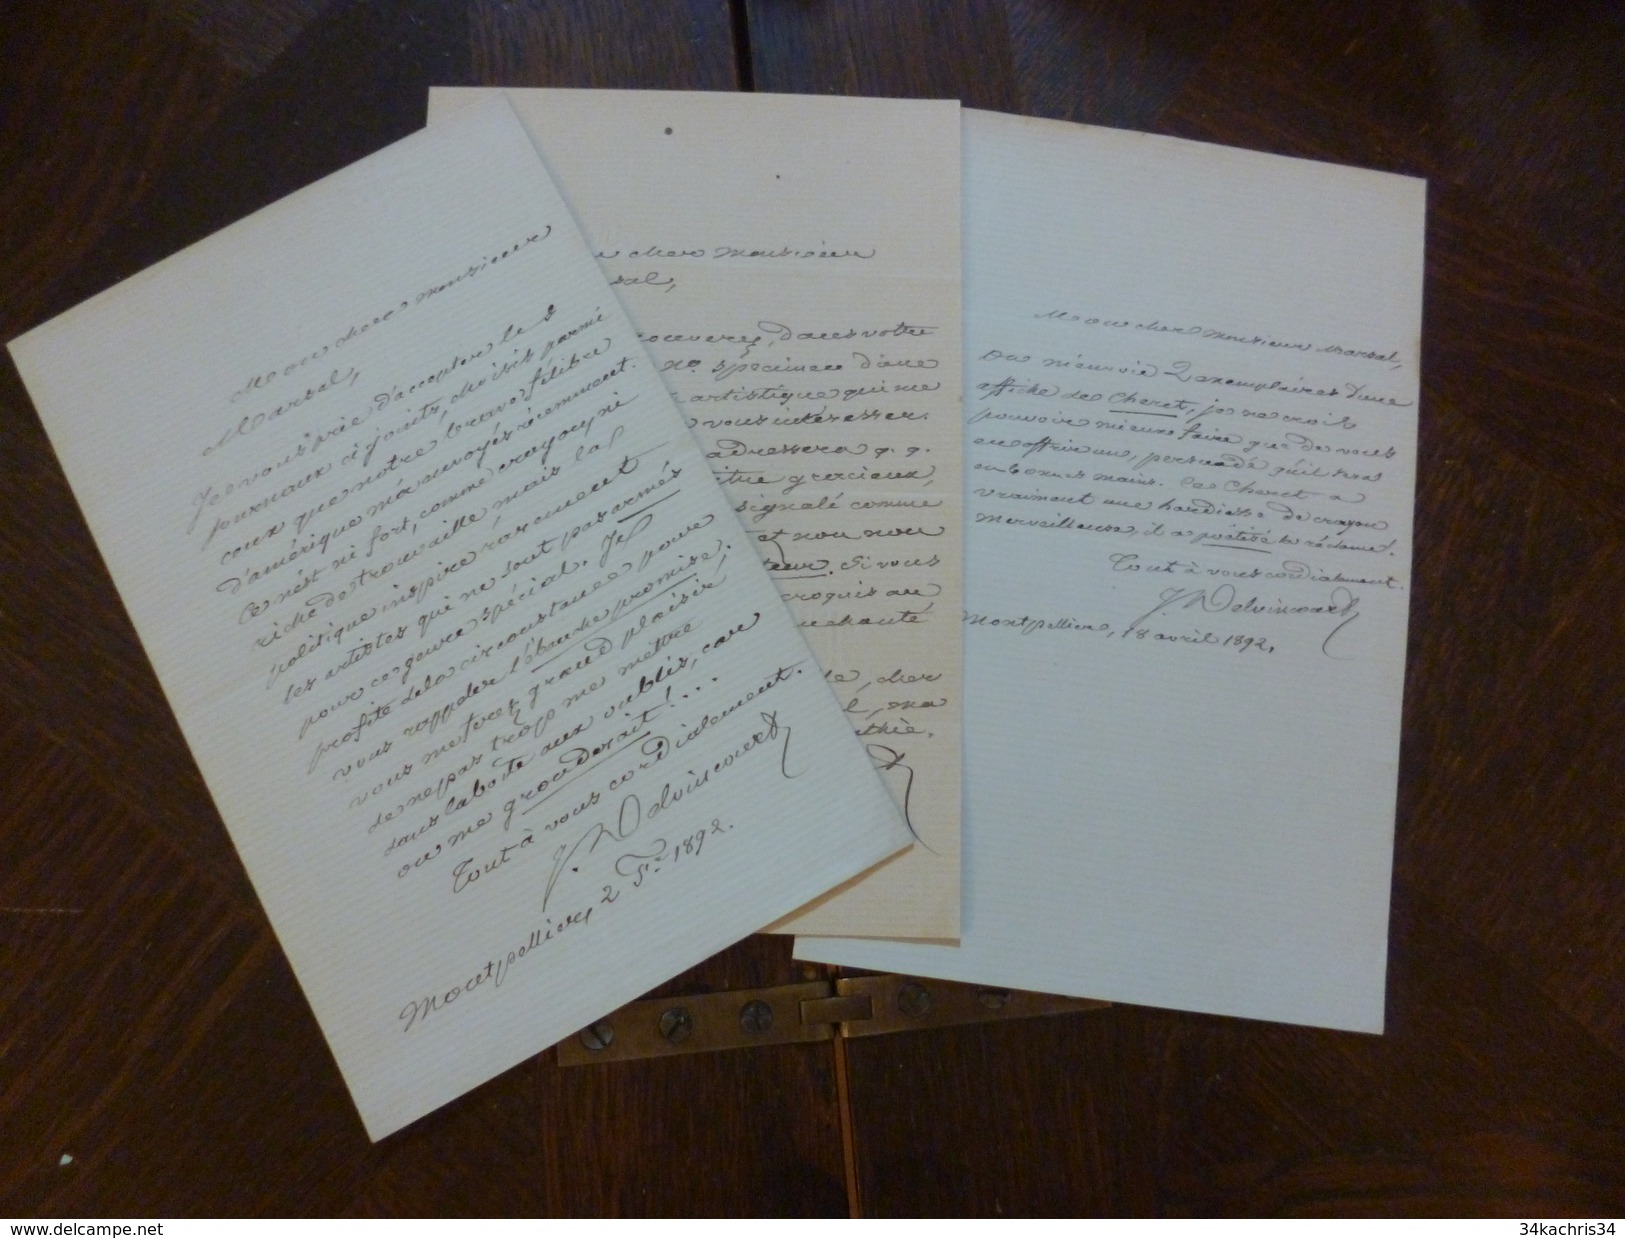 Mon cher monsieur
Marsal,
Je vous prie d'accepter les
journaux ci joints, choisis parmi
ceux que notre brave félibre
d'amérique m'a envoyés récemment.
Ce n'est ni fort, comme crayon, ni
riche de trouvaille, mais la
politique inspire rarement
les artistes qui ne sont pas armés
pour ce genre spécial. Je
profite de la circonstance pour
vous rappeler l'ébauche promise;
vous me ferez grand plaisir
de ne pas trop me mettre
dans la boîte aux oublis, car
on me gronderait!...
Tout à vous cordialement.
J. Delvincourt
Montpellier, 2 Fr. 1892.
cher Monsieur
sal,
trouverez, dans votre
no spécimen d'une
artistique qui me
vous intéresser.
adressera q. q.
titre gracieux,
signalé comme
et non non
teur. Si vous
croquis au
enchanté
cher
l, ma
athie.
Mon cher monsieur Marsal,
On m'envoie 2 exemplaires d'une
affiche de Cheret, je ne crois
pouvoir mieux faire que de vous
en offrir un, persuadé qu'il sera
en bonnes mains. Ce Cheret a
vraiment une hardiesse de crayon
merveilleuse, il a poétisé la réclame!
Tout à vous cordialement.
J. Delvincourt
Montpellier, 18 avril 1892.
www.delcampe.net
34kachris34